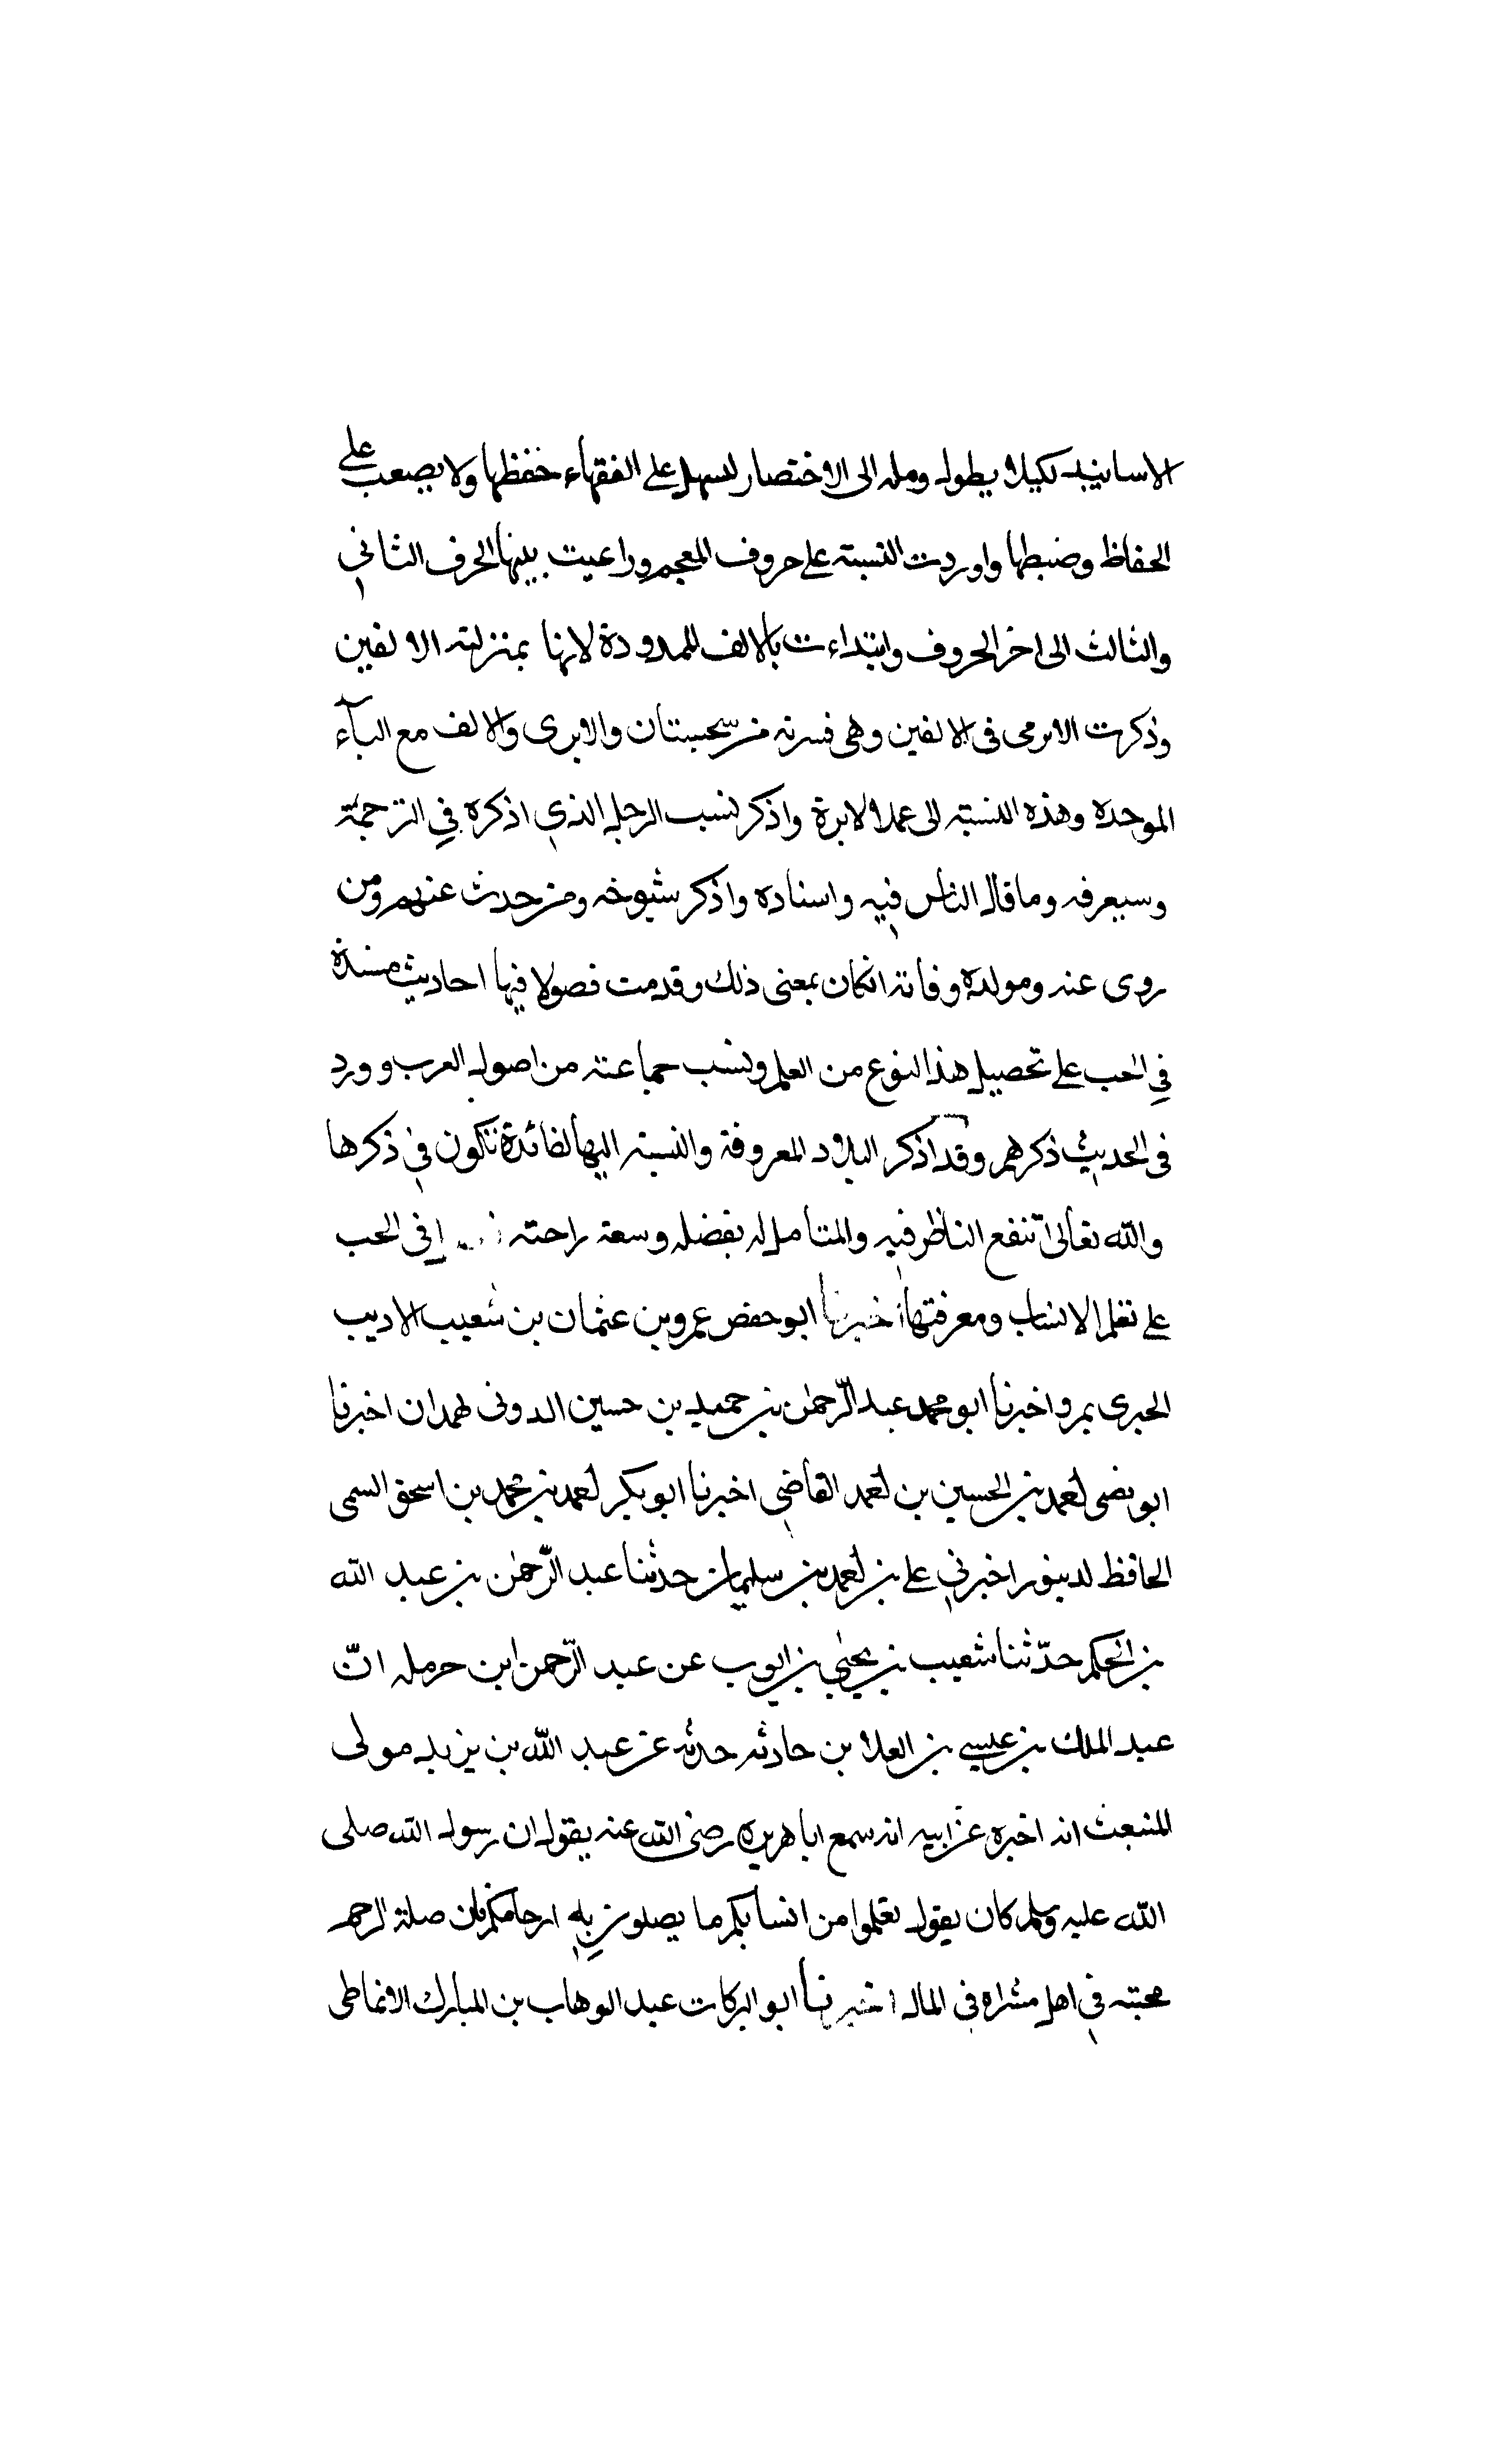 الاسانيد لكيلا يطول وملت الى الاختصار ليسهل على الفقهاء حفظها ولا يصعب على
الحفاظ وضبطها واوردت النسبة على حروف المعجم وراعيت بينها الحرف الثاني
والثالث الى اخر الحروف وابتداءت بالالف الممدودة لانها بمنزلة الالفين
وذكرت الابرى فى الالفين وهى قرية من سجستان والابرى والالف مع البآء
الموحدة وهذه النسبة الى عمل الابرة واذكر نسب الرجل الذي اذكره في الترجمة
وسيعرفه وما قال الناس فيه واسناده واذكر شيوخه ومن حدث عنهم ومن
روى عنه ومولده وفاته انكان بمعنى ذلك وقدمت فصولا فيها احاديث مسندة
في الحب على تحصيل هذا النوع من العلم ونسب جماعة من اصول العرب وورد
فى الحديث ذكرهم وقد اذكر البلاد المعروفة والنسبة اليها لفائدة تكون في ذكرها
والله تعالى تنفع الناظر فيه والمتامل له بفضله وسعة راحته فى الحب
على تعلم الانساب ومعرفتها اخبرنا ابو حفص عمرو بن عثمان بن شعيب الاديب
الحبرى بمرو اخبرنا ابو محمد عبد الرّحمٰن بن حميد بن حسين الدونى لهمدان اخبرنا
ابو نصى احمد بن الحسين بن احمد القاضي اخبرنا ابو بكر احمد بن محمد بن اسحق السمى
الحافظ لدينور اخبرني على بن احمد بن سليمان حدثنا عبد الرّحمٰن بن عبد الله
بن الحكم حدّثنا شعيب بن يحيٰي بن ايوب عن عبد الرّحمن ابن حرمله انّ
عبد الملك بن عيسى بن العلا بن حادثه حدثه عن عبد اللّه بن يزيد مولى
المنبعث انه اخبره عن ابيه انه سمع ابا هريره رضى الله عنه يقول ان رسول الله صلى
اللّه عليه وسلم كان يقول تعلموا من انسابكم ما يصلون به ارحامكم فان صلة الرحم
محبته في اهل مثراه في المال اخبرنا ابو البركات عبد الوهاب بن المبارك الانماطى